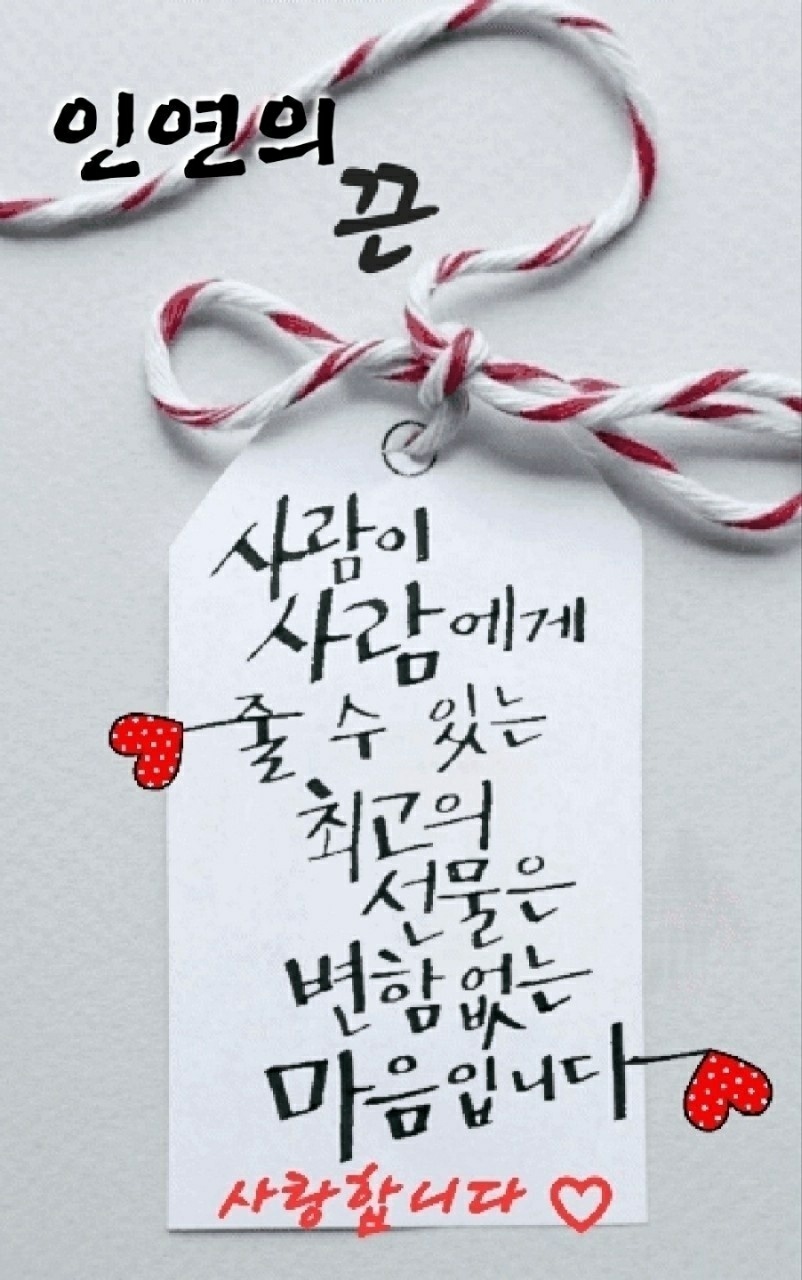 인연의
끈
사람이
사람에게
줄 수 있는
최고의
선물은
변함없는
마음입니다
사랑합니다 ♡